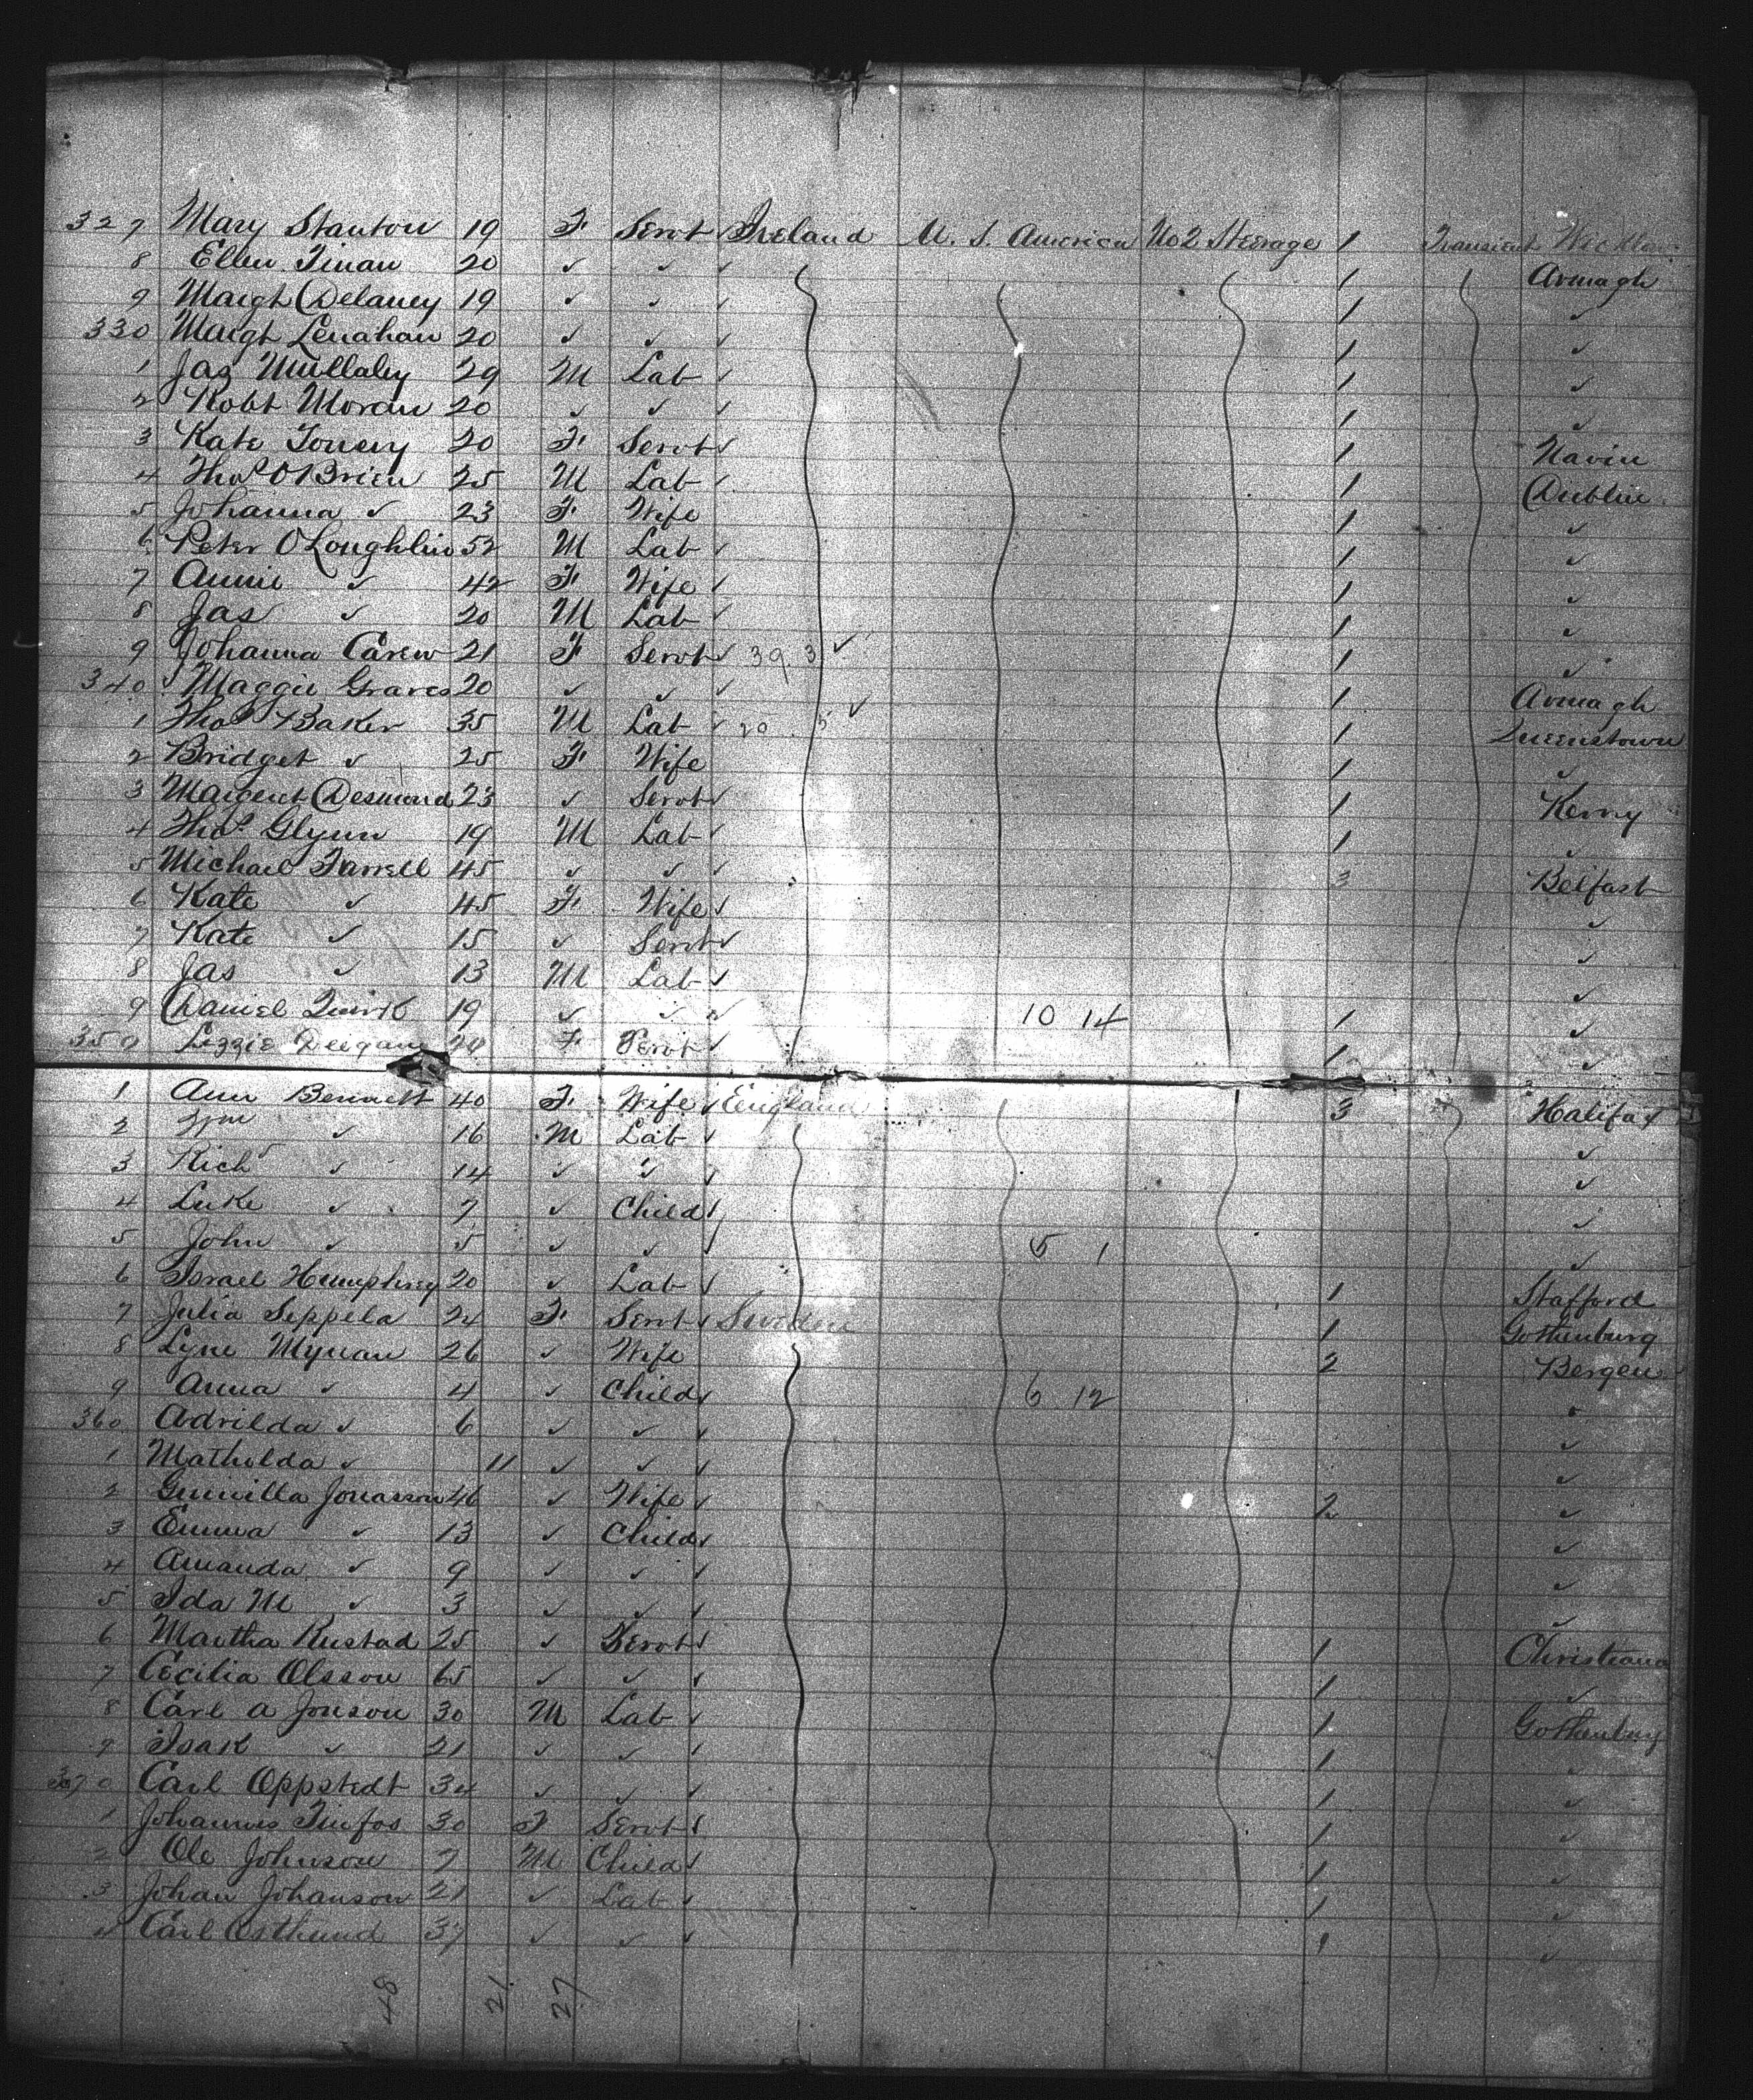 327 Mary Stanton 19 F Servt Ireland U. S. America No 2 Steerage 1 Transient Wicklow
8 Ellen Tinan 20 ✓ ✓ ✓ 1 Armagh
9 Margt Delaney 19 ✓ ✓ ✓ 1 ✓
330 Margt Lenahan 20 ✓ ✓ ✓ 1 ✓
1 Jas Mullaly 29 M Lab ✓ 1 ✓
2 Robt Moran 20 ✓ ✓ ✓ 1 ✓
3 Kate 20 F Servt ✓ 1 Navin
4 Thos O'Brien 25 M Lab ✓ 1 Dublin
5 Johanna ✓ 23 F Wife 1 ✓
6 Peter O'Loughlin 52 M Lab ✓ 1 ✓
7 Annie ✓ 42 F Wife ✓ 1 ✓
8 Jas ✓ 20 M Lab ✓ 1 ✓
9 Johanna Carew 21 F Servt ✓ 39 3 ✓ 1 ✓
340 Maggie Graves 20 ✓ ✓ ✓ 1 Armagh
1 Thos Baker 35 M Lab ✓ 20 5 ✓ 1 Queenstown
2 Bridget ✓ 25 F Wife 1 ✓
3 Margent Desmond 23 ✓ Servt ✓ 1 Kerry
4 Thos Glynn 19 M Lab ✓ 1 ✓
5 Michael Farrell 45 ✓ ✓ ✓ 3 Belfast
6 Kate ✓ 45 F Wife ✓ ✓
7 Kate ✓ 15 ✓ Servt ✓ ✓
8 Jas ✓ 13 M Lab ✓ ✓
9 Daniel Quirk 19 ✓ ✓ ✓ 10 14 1 ✓
350 Lizzie Deegan 20 F Servt ✓ 1 ✓
1 Ann Bennett 40 F Wife ✓ England 3 Halifax
2 Wm ✓ 16 M Lab ✓ ✓
3 Richd ✓ 14 ✓ ✓ ✓ ✓
4 Luke ✓ 7 ✓ Child ✓ ✓
5 John ✓ 5 ✓ ✓ ✓ 5 1 ✓
6 Israel Humphrey 20 ✓ Lab ✓ 1 Stafford
7 Julia Seppela 24 F Servt ✓ Sweden 1 Gothenburg
8 Lyne Mynan 26 ✓ Wife 2 Bergen
9 Anna ✓ 4 ✓ Child ✓ 6 12 ✓
360 Adrilda ✓ 6 ✓ ✓ ✓ ✓
1 Matholda ✓ 11 ✓ ✓ ✓ ✓
2 Gunilla Jonasson 46 ✓ Wife ✓ 2 ✓
3 Emma ✓ 13 ✓ Child ✓ ✓
4 Amanda ✓ 9 ✓ ✓ ✓ ✓
5 Ida M ✓ 3 ✓ ✓ ✓ ✓
6 Martha Rustad 25 ✓ Servt ✓ 1 Christiana
7 Cecilia Olsson 65 ✓ ✓ ✓ 1 ✓
8 Carl A Jonson 30 M Lab ✓ 1 Gothenburg
9 Isak ✓ 21 ✓ ✓ ✓ 1 ✓
370 Carl Oppstedt 34 ✓ ✓ ✓ 1 ✓
1 Johannes Tinfos 30 F Servt ✓ 1 ✓
2 Ole Johnson 7 M Child ✓ 1 ✓
3 Johan Johanson 21 ✓ Lab ✓ 1 ✓
4 Carl Osthund 37 ✓ ✓ ✓ 1 ✓
48 21 27